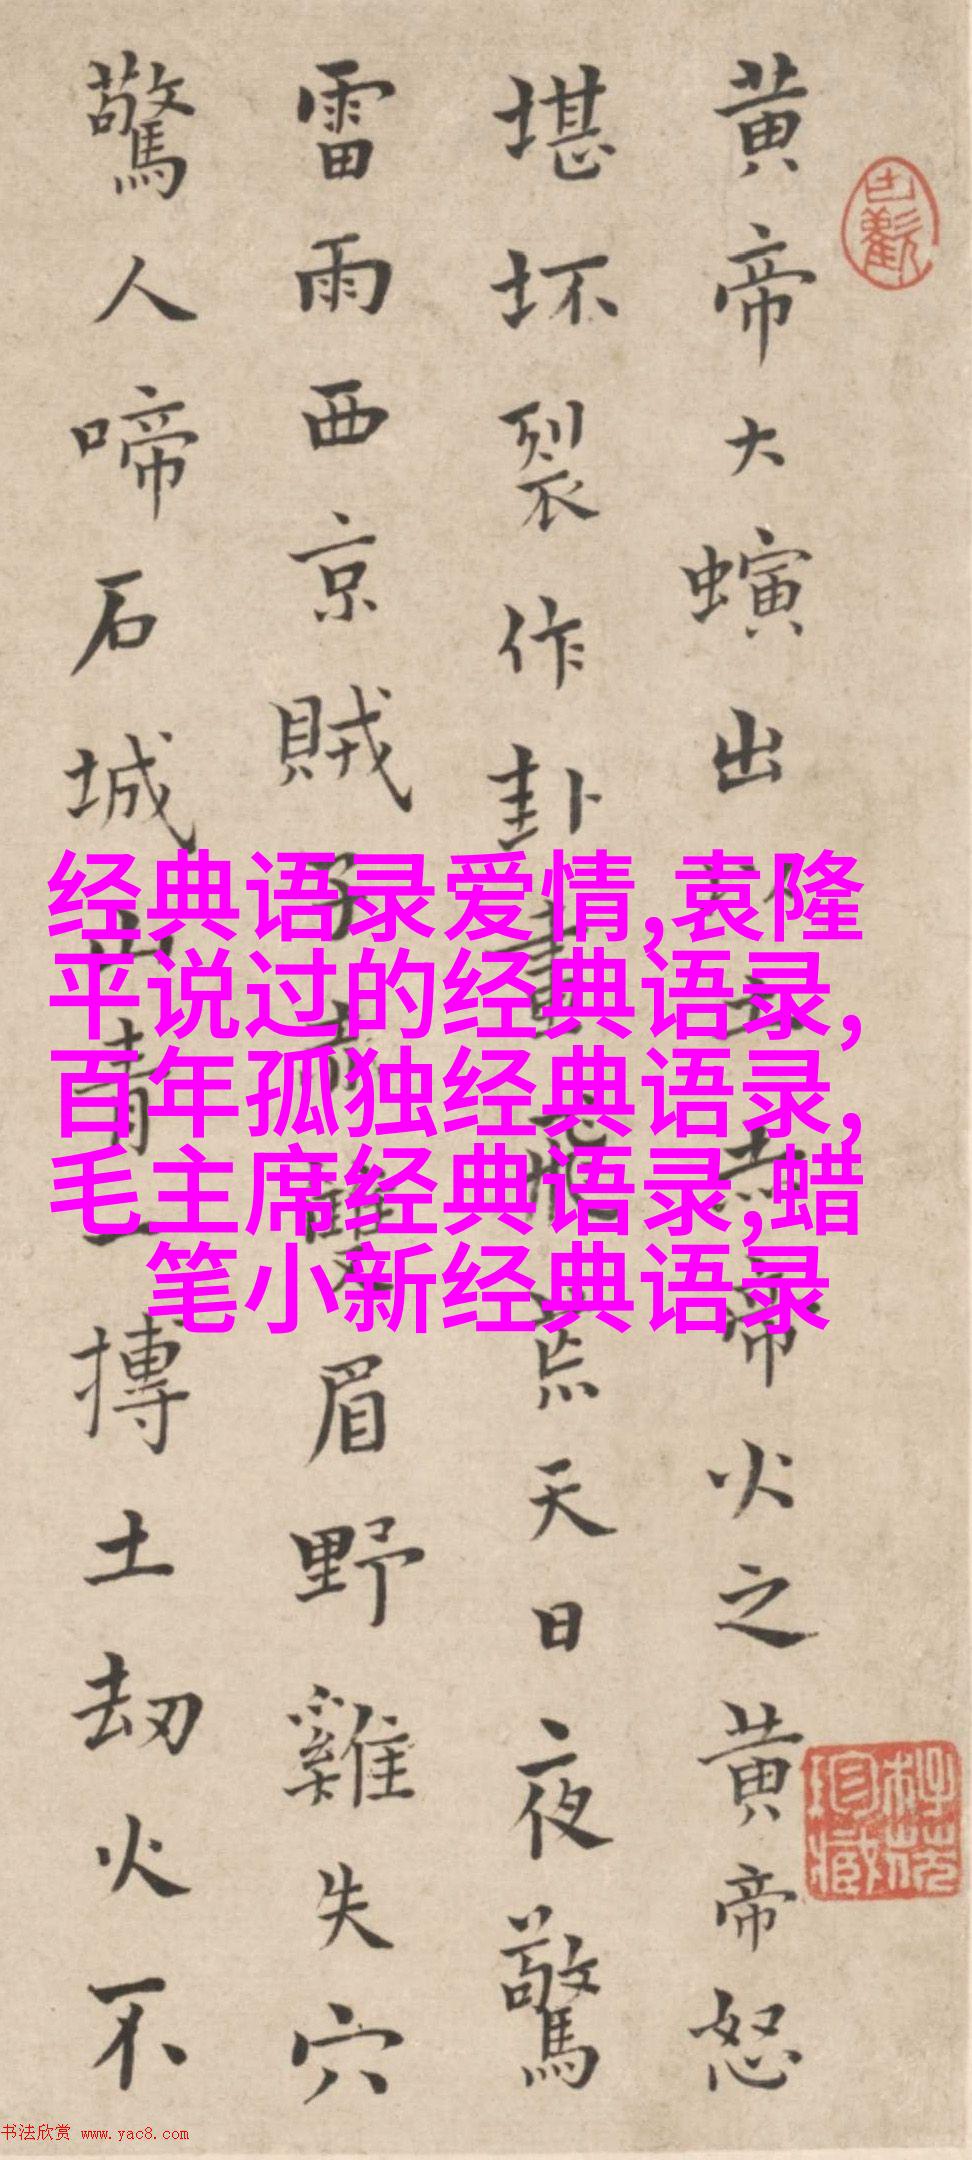 黄帝大螾出帝火之黄帝怒
堪坏裂作卦畫天日夜驚
雷雨西京賊子眉野雞失穴
驚人啼石城山青一摶土劫火不
经典语录爱情,袁隆
平说过的经典语录,
百年孤独经典语录,
毛主席经典语录,蜡
笔小新经典语录
书法欣赏 www.yac8.com